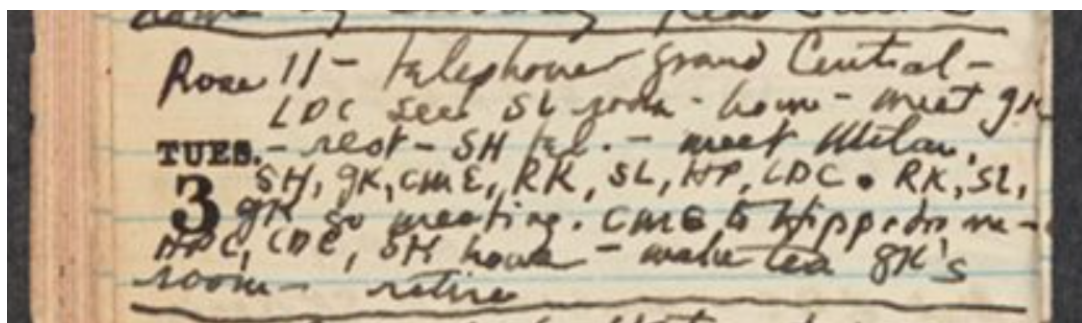 Rose 11 - telephone Grand Central -
LDC see SL room - home - meet GK
TUES. - rest - SH tel. - meet Milan,
3 SH, GK, CME, RK, SL, HP, LDC. RK, SL,
GK go meeting. CME to Hippodrome -
HPC, LDC, SH home - make tea GK's
room - retire